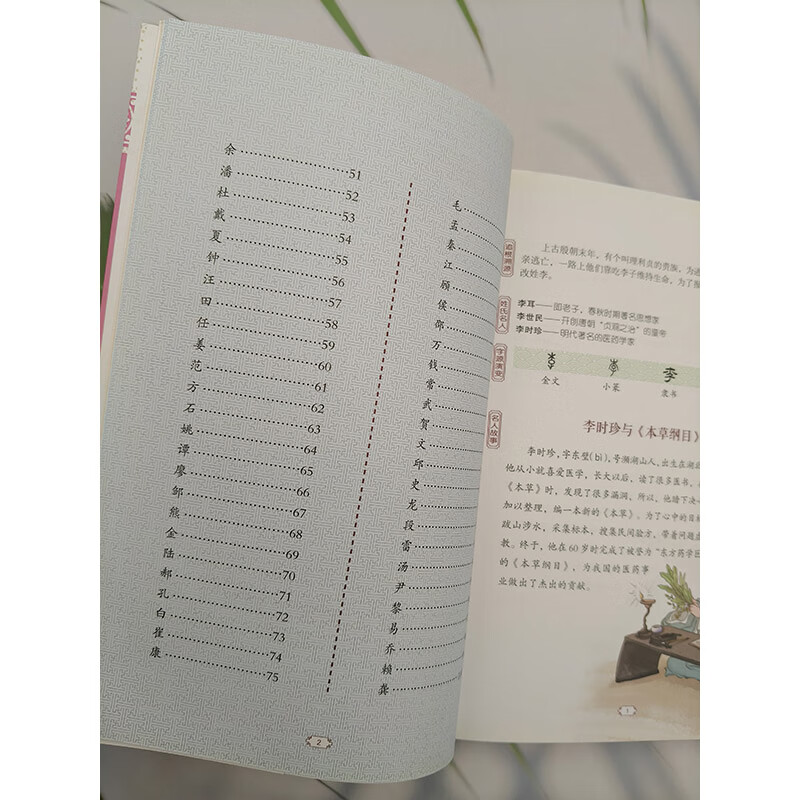 余……51
潘……52
杜……53
戴……54
夏……55
钟……56
汪……57
田……58
任……59
姜……60
范……61
方……62
石……63
姚……64
谭……65
廖……66
邹……67
熊……68
金……69
陆……70
郝……71
孔……72
白……73
崔……74
康……75
毛……
孟……
秦……
江……
顾……
侯……
邵……
万……
钱……
常……
武……
贺……
文……
邱……
史……
龙……
段……
雷……
汤……
尹……
黎……
易……
乔……
赖……
龚……
2
追根溯源
上古殷朝末年，有个叫理利贞的贵族，为
亲逃亡，一路上他们靠吃李子维持生命，为了
改姓李。
姓氏名人
李耳——即老子，春秋时期著名思想家
李世民——开创唐朝“贞观之治”的皇帝
李时珍——明代著名的医药学家
字源演变
金文 小篆 隶书
名人故事
李时珍与《本草纲目》
李时珍，字东璧(bì)，号濒湖山人，出生在湖
他从小就喜爱医学，长大以后，读了很多医书，
《本草》时，发现了很多漏洞，所以，他踏下决
加以整理，编一本新的《本草》。为了心中的目
跋山涉水，采集标本、搜集民间验方，带着问题
教。终于，他在60岁时完成了被誉为“东方药学
的《本草纲目》，为我国的医药事
业做出了杰出的贡献。
1